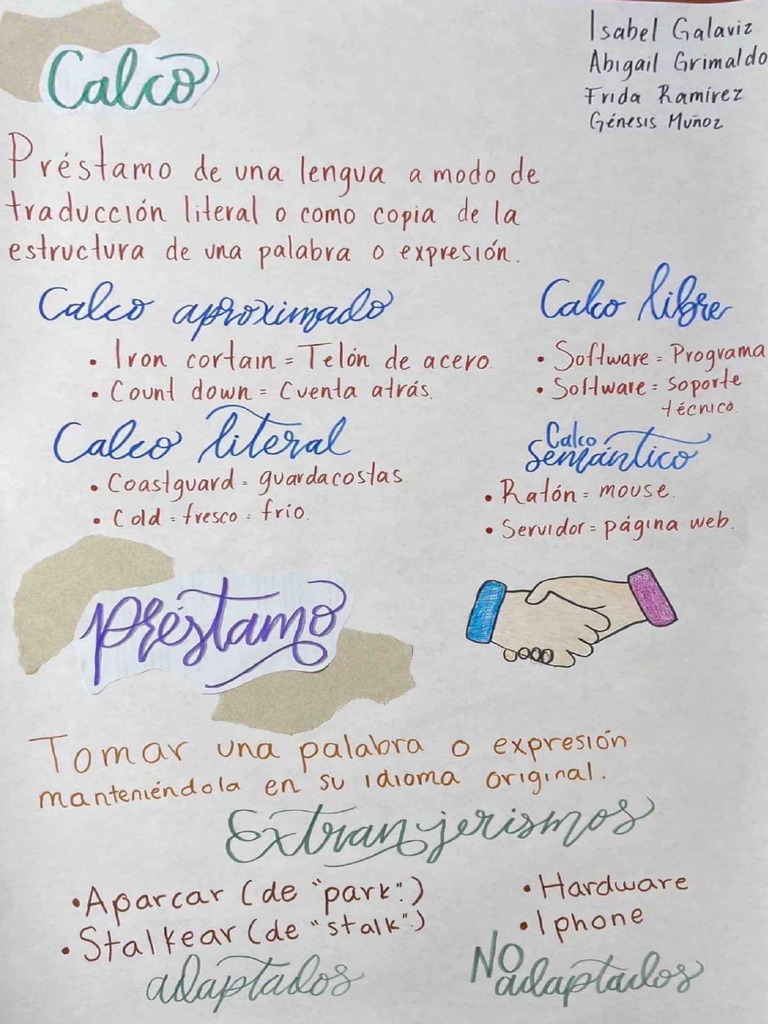 Calco
Isabel Galaviz
Abigail Grimaldo
Frida Ramírez
Génesis Muñoz
Préstamo de una lengua a modo de
traducción literal o como copia de la
estructura de una palabra o expresión.
Calco aproximado
• Iron cortain = Telón de acero.
• Count down = Cuenta atrás.
Calco libre
• Software = Programa
• Software = soporte
técnico.
Calco literal
• Coastguard = guardacostas.
• Cold = fresco = frío.
Calco
semántico
• Ratón = mouse.
• Servidor = página web.
Préstamo
Tomar una palabra o expresión
manteniéndola en su idioma original.
Extranjerismos
• Aparcar (de "park".)
• Stalkear (de "stalk".)
adaptados
• Hardware
• Iphone
No
adaptados